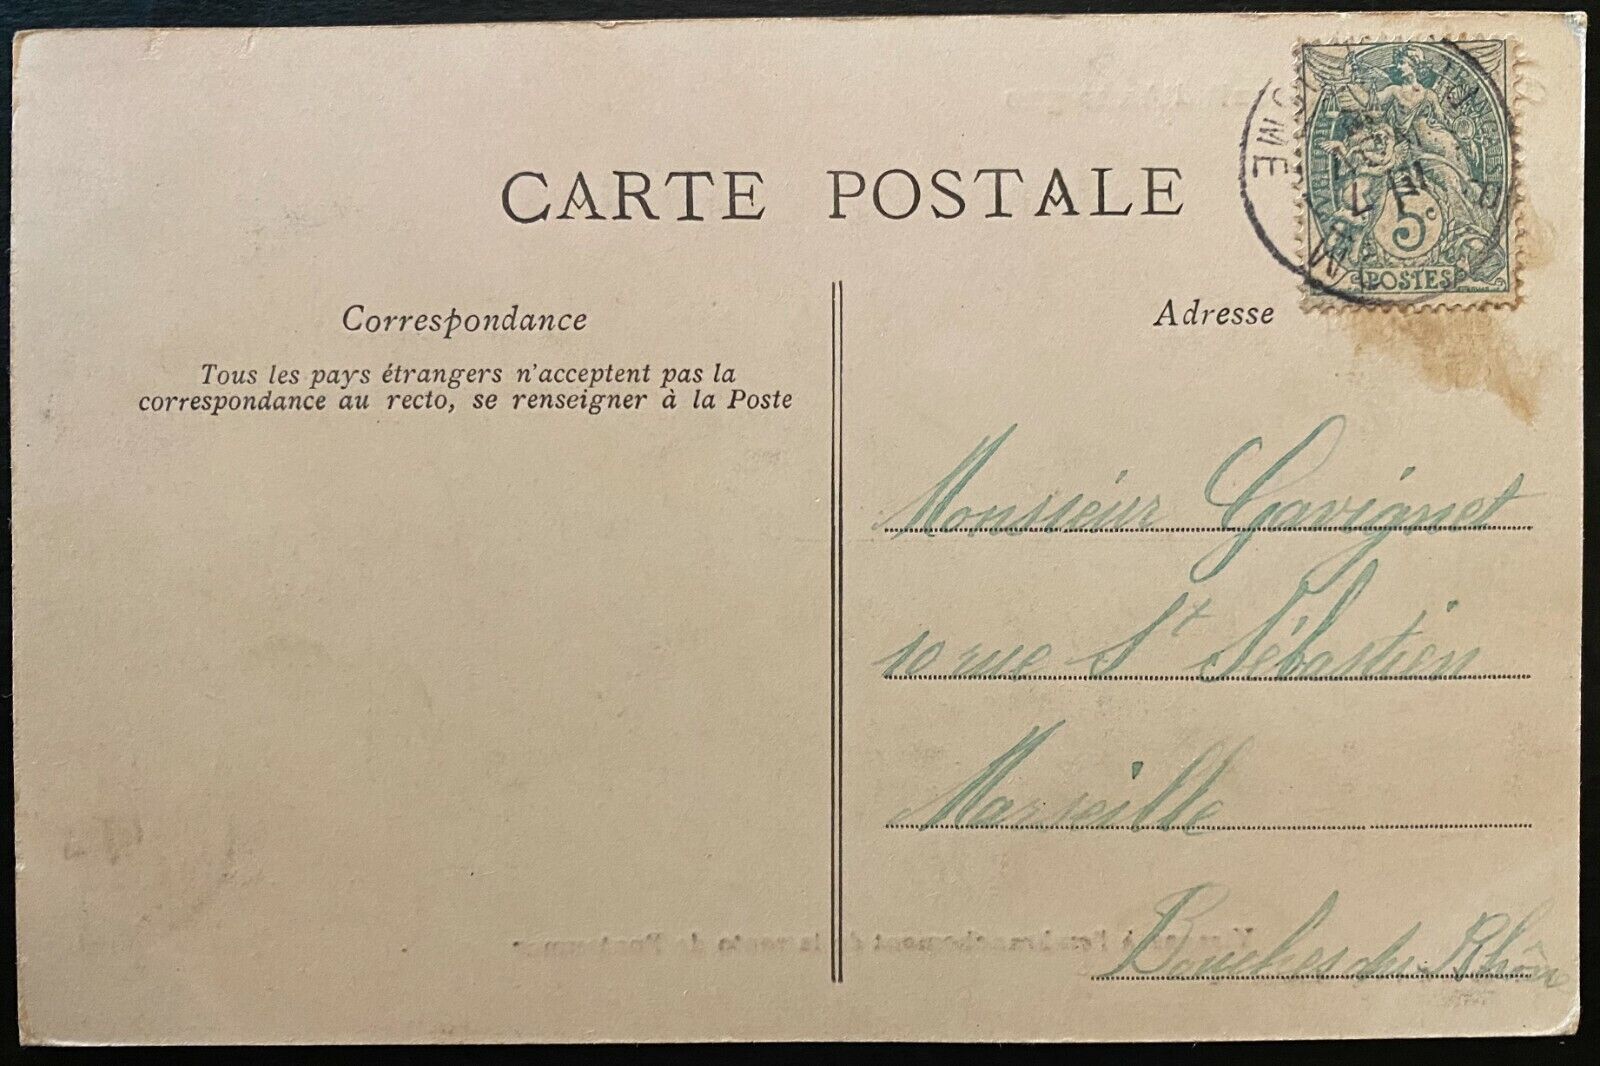 CARTE POSTALE
5c
POSTES
Correspondance
Tous les pays étrangers n'acceptent pas la
correspondance au recto, se renseigner à la Poste
Adresse
Monsieur Gavignet
10 rue St Sébastien
Marseille
Bouches du Rhône